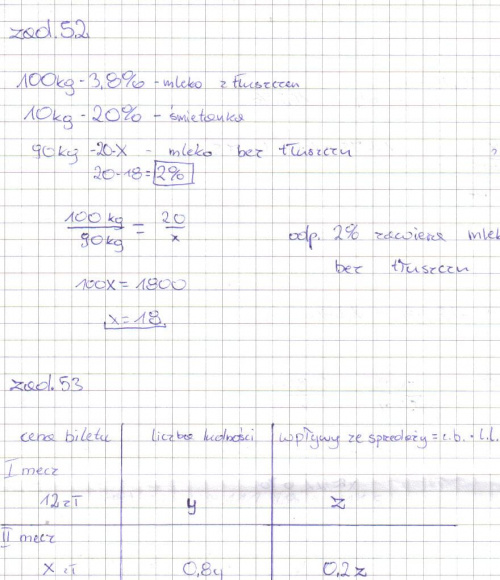 zad.52
100kg - 3,8% - mleko z tłuszczem
10kg - 20% - śmietanka
90kg - 20-x - mleko bez tłuszczu
20-18=2%
100 kg / 90kg = 20 / x
odp. 2% zawiera mlek
bez tłuszczu
100x = 1800
x = 18
zad.53
cena biletu liczba ludności wpływy ze sprzedaży = c.b. · l.l.
I mecz
12 zł y z
II mecz
x zł 0,8y 0,2z